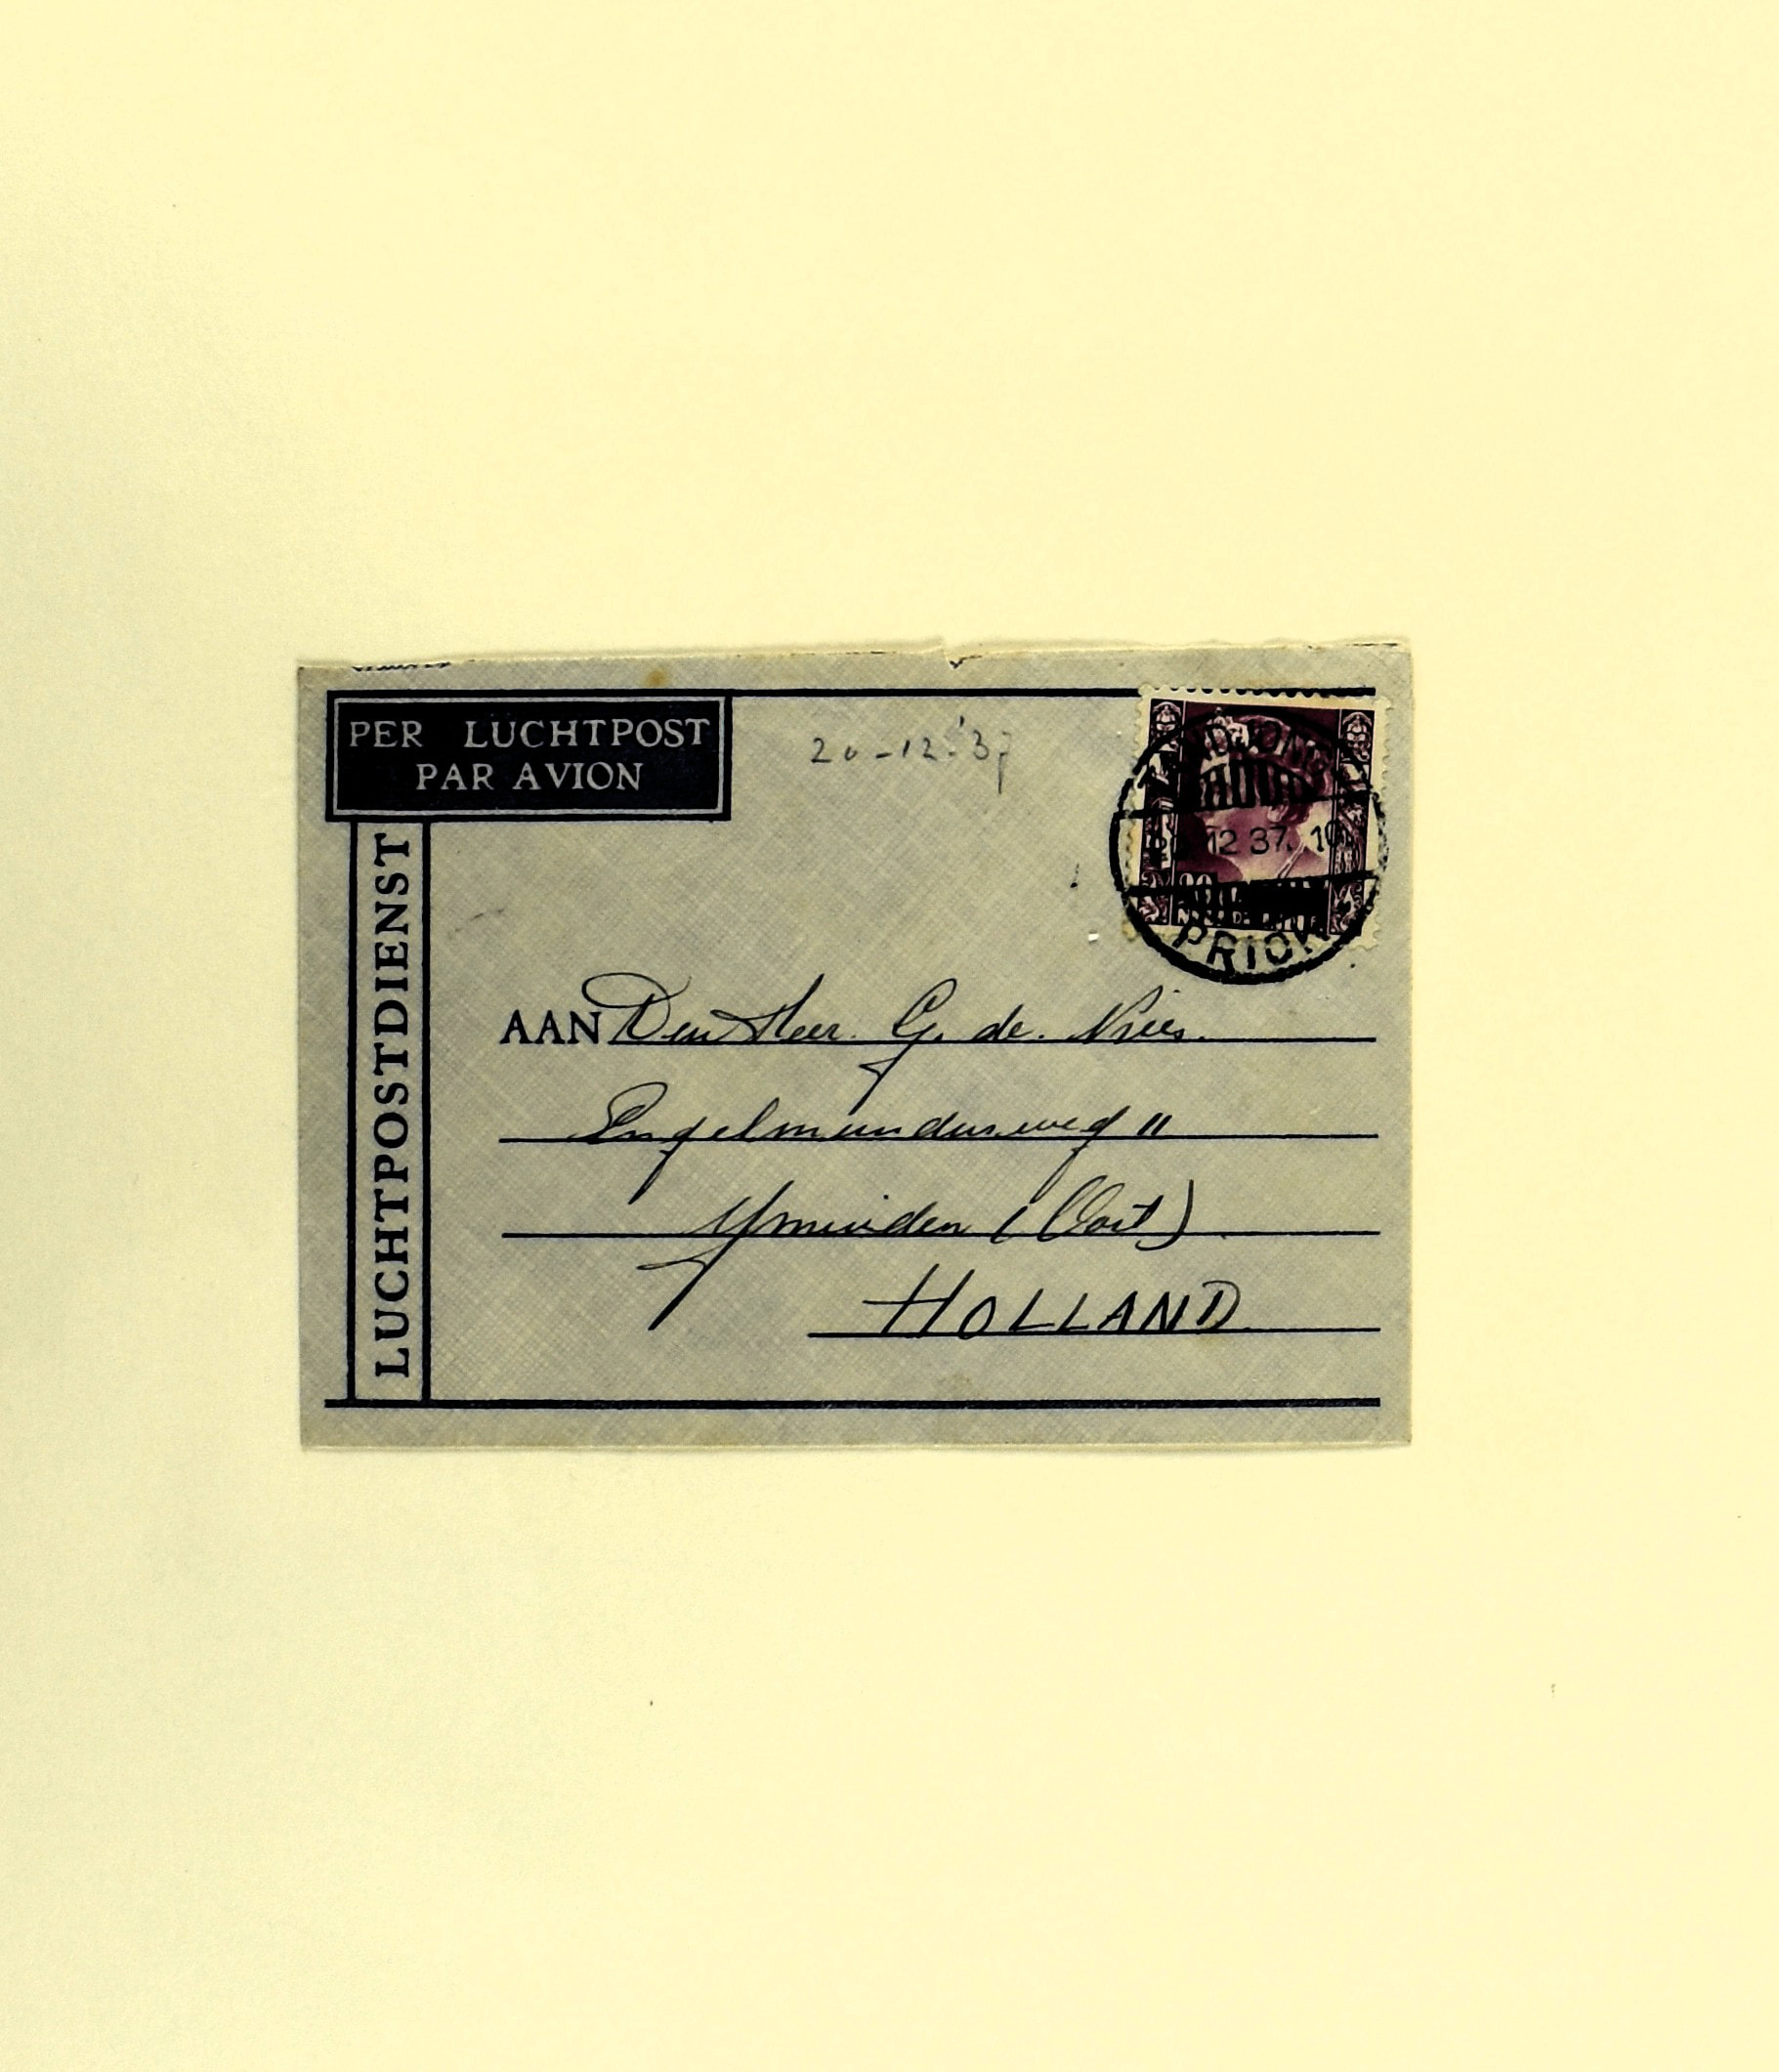 PER LUCHTPOST
PAR AVION
20-12-'37
LUCHTPOSTDIENST
TANDJONG
12 37. 10
PRIOK
AAN Den Heer. G. de. Vries.
Engelmundusweg 11
Ymuiden (Oost)
HOLLAND